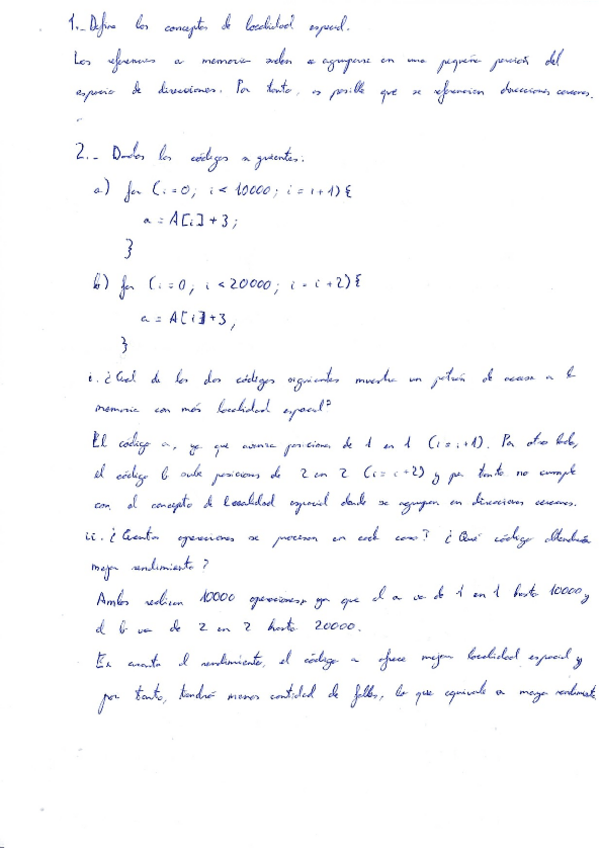 1.- Define los conceptos de localidad espacial.
Las referencias a memoria suelen a agruparse en una pequeña porción del
espacio de direcciones. Por tanto, es posible que se referencien direcciones cercanas.
2.- Dados los códigos siguientes:
a) for (i=0; i<10000; i=i+1){
a = A[i]+3;
}
b) for (i=0; i<20000; i=i+2){
a = A[i]+3;
}
i. ¿Cual de los dos códigos siguientes muestra un patrón de acceso a la
memoria con más localidad espacial?
El código a, ya que avanza posiciones de 1 en 1 (i=i+1). Por otro lado,
el código b sube posiciones de 2 en 2 (i=i+2) y por tanto no cumple
con el concepto de localidad espacial donde se agrupan en direcciones cercanas.
ii. ¿Cuantas operaciones se procesan en cada caso? ¿Qué código obtendrá
mejor rendimiento?
Ambos realizan 10000 operaciones, ya que el a va de 1 en 1 hasta 10000 y
el b va de 2 en 2 hasta 20000.
En cuanto al rendimiento, el código a ofrece mejor localidad espacial y
por tanto, tendrá menos cantidad de fallos, lo que equivale a mayor rendimiento